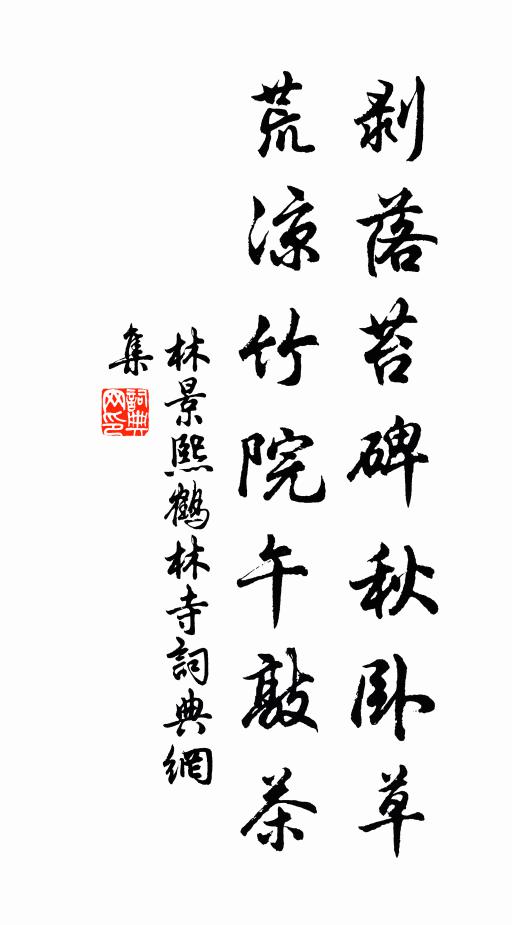 剥落苔碑秋卧草
荒凉竹院午敲茶
林景熙鹤林寺詞典網
集
詞典
网印